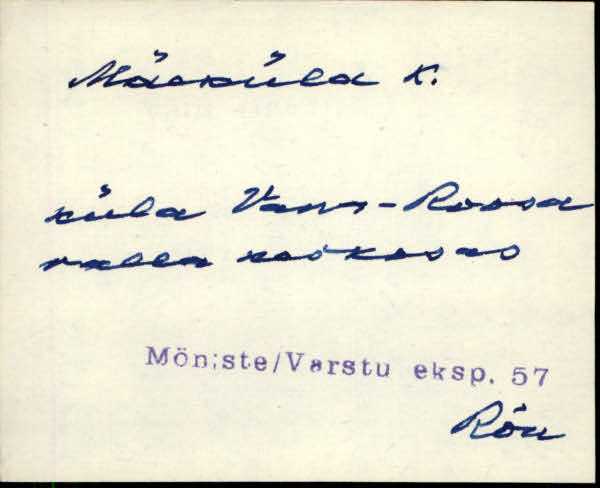 Mäeküla k.
küla Vana-Roosa
valla keskosas
Mõniste/Varstu eksp. 57
Rõu